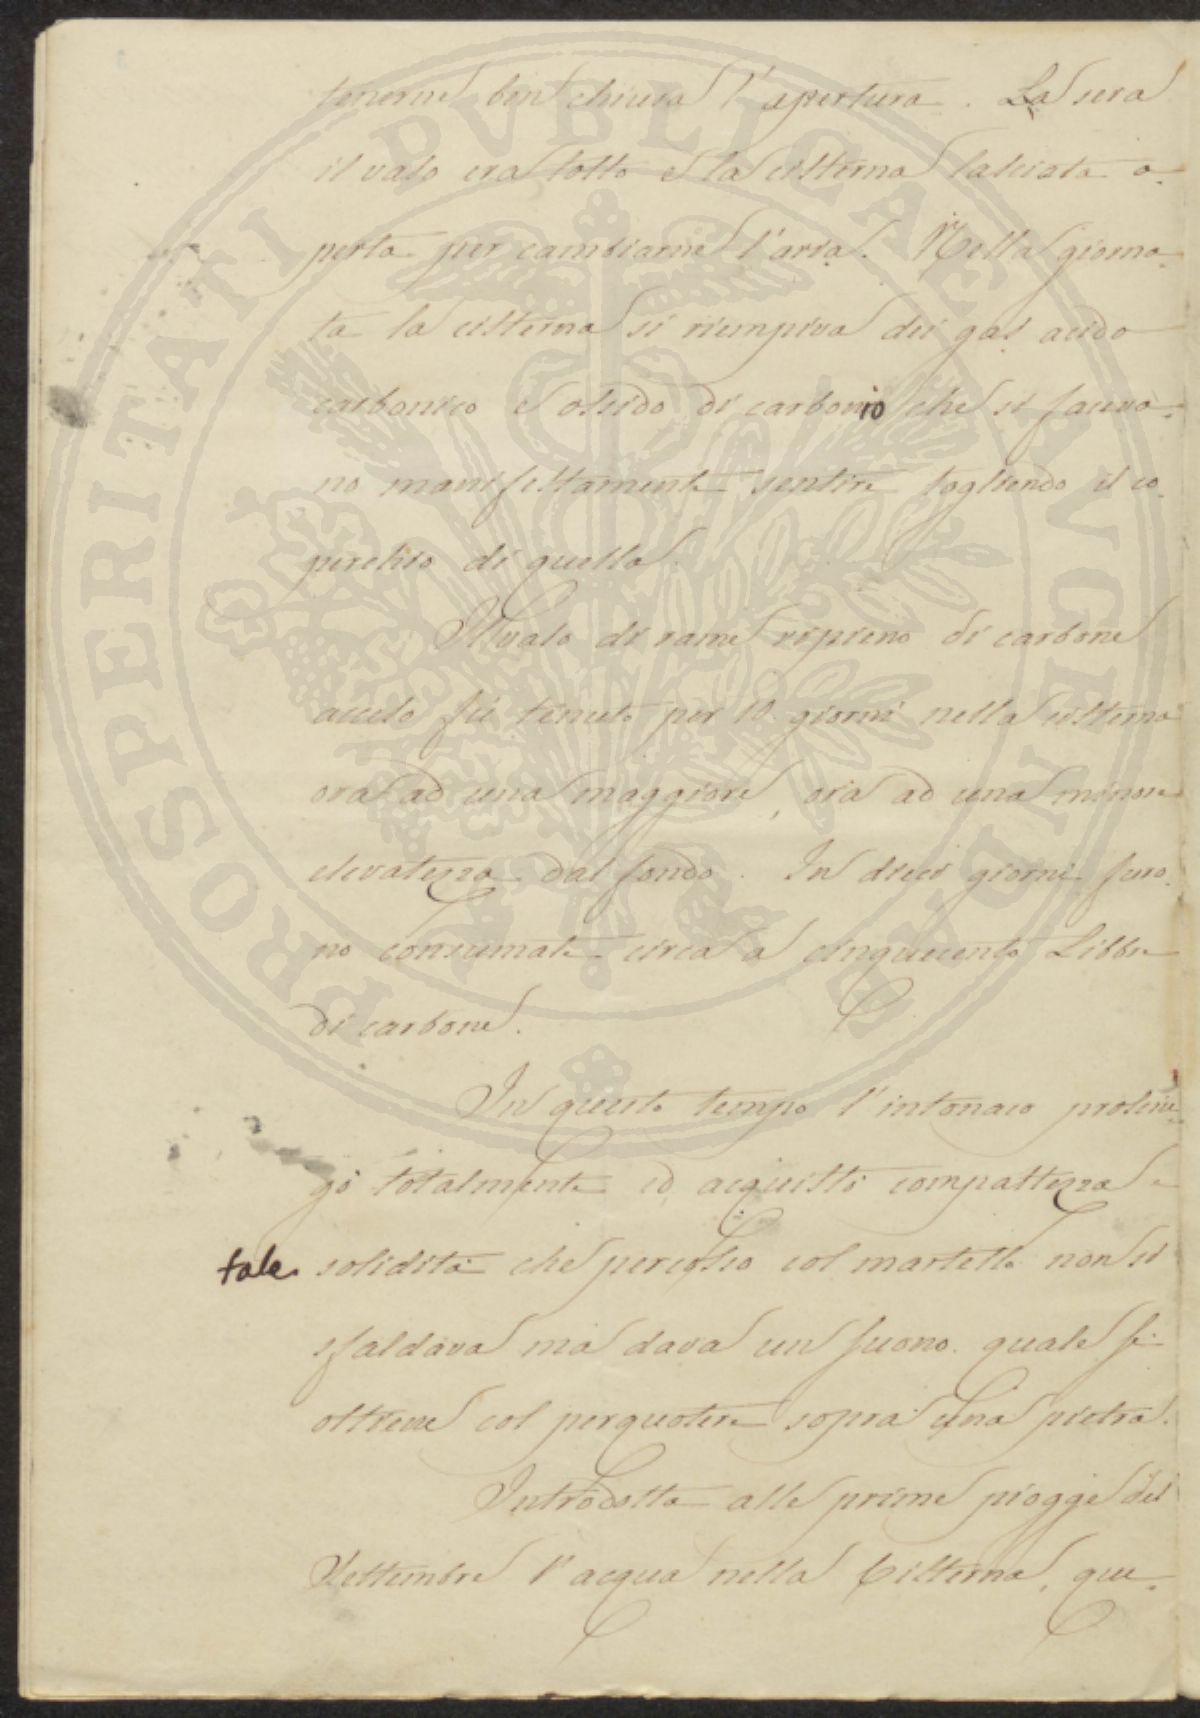 tenerne ben chiusa l'apertura. La sera
il vaso era tolto e la cisterna lasciata a-
perta per cambiarne l'aria. Nella giorna-
ta la cisterna si riempiva dei gas acido
carbonico e ossido di carbonio che si faceva-
no manifestamente sentire togliendo il co-
perchio di quella.
Il vaso di rame ripieno di carbone
acceso fù tenuto per 10 giorni nella cisterna
ora ad una maggiore, ora ad una minore
elevatezza dal fondo. In dieci giorni furo-
no consumate circa a cinquecento Libbre
di carbone.
In questo tempo l'intonaco prosciu-
gò totalmente ed acquistò compattezza e
tale solidità che percosso col martello non si
sfaldava ma dava un suono quale si
ottiene col perquotere sopra una pietra.
Introdotta alle prime piogge del
Settembre l'acqua nella Cisterna, que-
PROSPERITATI PVBLICAE AVGENDAE